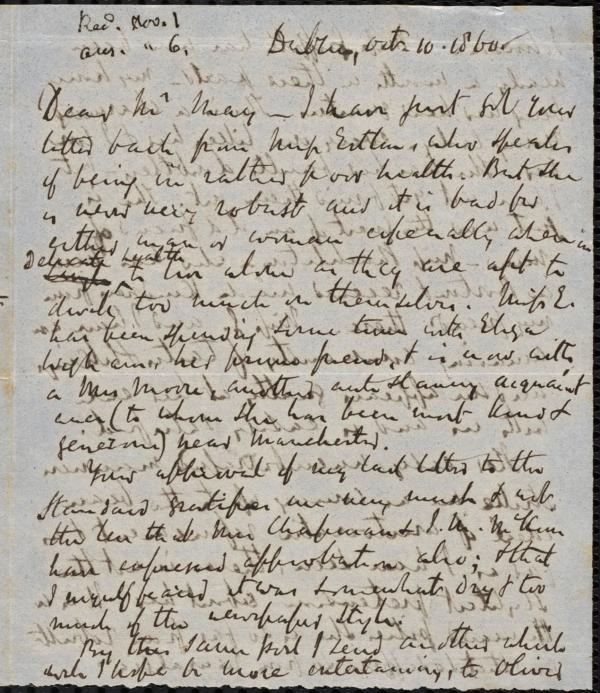 Recd. Nov. 1
ans. " 6.
Dublin, Oct. 10. 1860.
Dear Mr May — I have just got your
letter back from Miss Estlin, who speaks
of being in rather poor health. But she
is never very robust and it is bad for
either man or woman especially when in
Delicate health
to live alone as they are apt to
dwell too much on themselves. Miss E.
has been spending some time with Eliza
Wigham, her prime friend, & is now with
a Mrs Moore, another anti slavery acquaint
ance (to whom she has been most kind &
generous) near Manchester.
Your approval of my last letter to the
Standard gratifies me very much &
the less that Mrs Chapman & J. M. McKim
have expressed approbation also; & that
I myself feared it was somewhat dry & too
much of the newspaper style.
By this same post I send another which
I hope be more entertaining, to Oliver